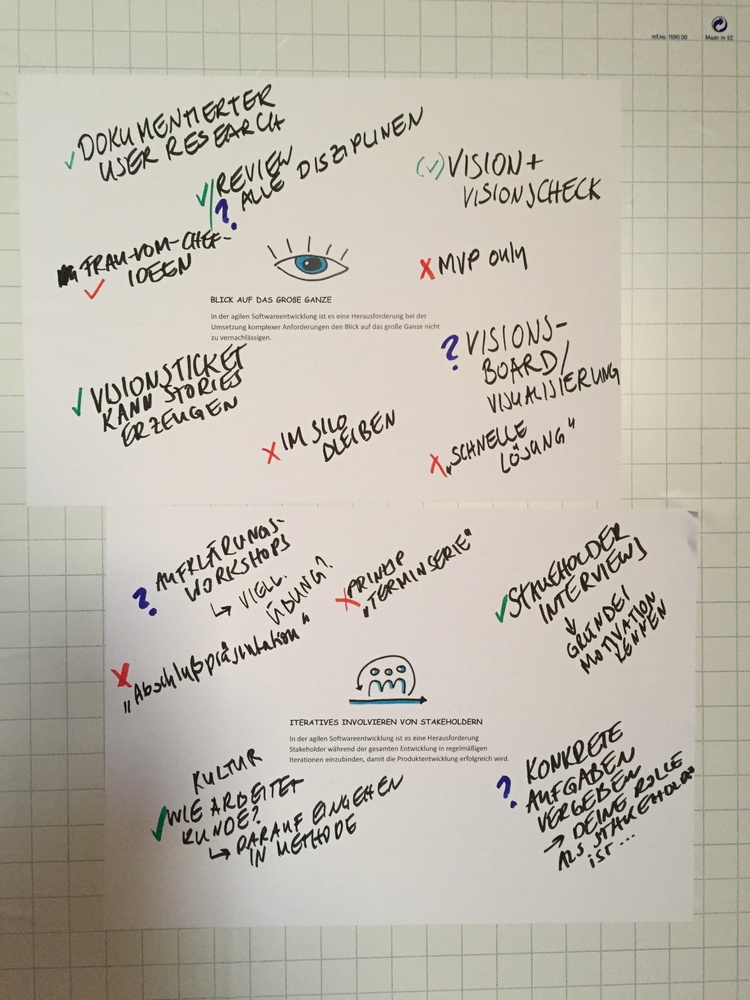 ref.no. 1590 00
Made in EC
✓ DOKUMENTIERTER
USER RESEARCH
✓/? REVIEW
ALLE DISZIPLINEN
(✓) VISION +
VISIONSCHECK
FRAU-VOM-CHEF-
IDEEN
✓
X MVP only
BLICK AUF DAS GROßE GANZE
In der agilen Softwareentwicklung ist es eine Herausforderung bei der
Umsetzung komplexer Anforderungen den Blick auf das große Ganze nicht
zu vernachlässigen.
? VISIONS-
BOARD/
VISUALISIERUNG
✓ VISIONSTICKET
KANN STORIES
ERZEUGEN
X IM SILO
BLEIBEN
X „SCHNELLE
LÖSUNG"
? AUFKLÄRUNGS-
WORKSHOPS
↳ VIELL.
ÜBUNG?
X PRINZIP
„TERMINSERIE"
✓ STAKEHOLDER
INTERVIEWS
↓
GRÜNDE/
MOTIVATION
KENNEN
X „Abschlußpräsentation"
ITERATIVES INVOLVIEREN VON STAKEHOLDERN
In der agilen Softwareentwicklung ist es eine Herausforderung
Stakeholder während der gesamten Entwicklung in regelmäßigen
Iterationen einzubinden, damit die Produktentwicklung erfolgreich wird.
KULTUR
✓ WIE ARBEITET
KUNDE?
↳ DARAUF EINGEHEN
IN METHODE
? KONKRETE
AUFGABEN
VERGEBEN
→ DEINE ROLLE
ALS STAKEHOLDER
IST ...